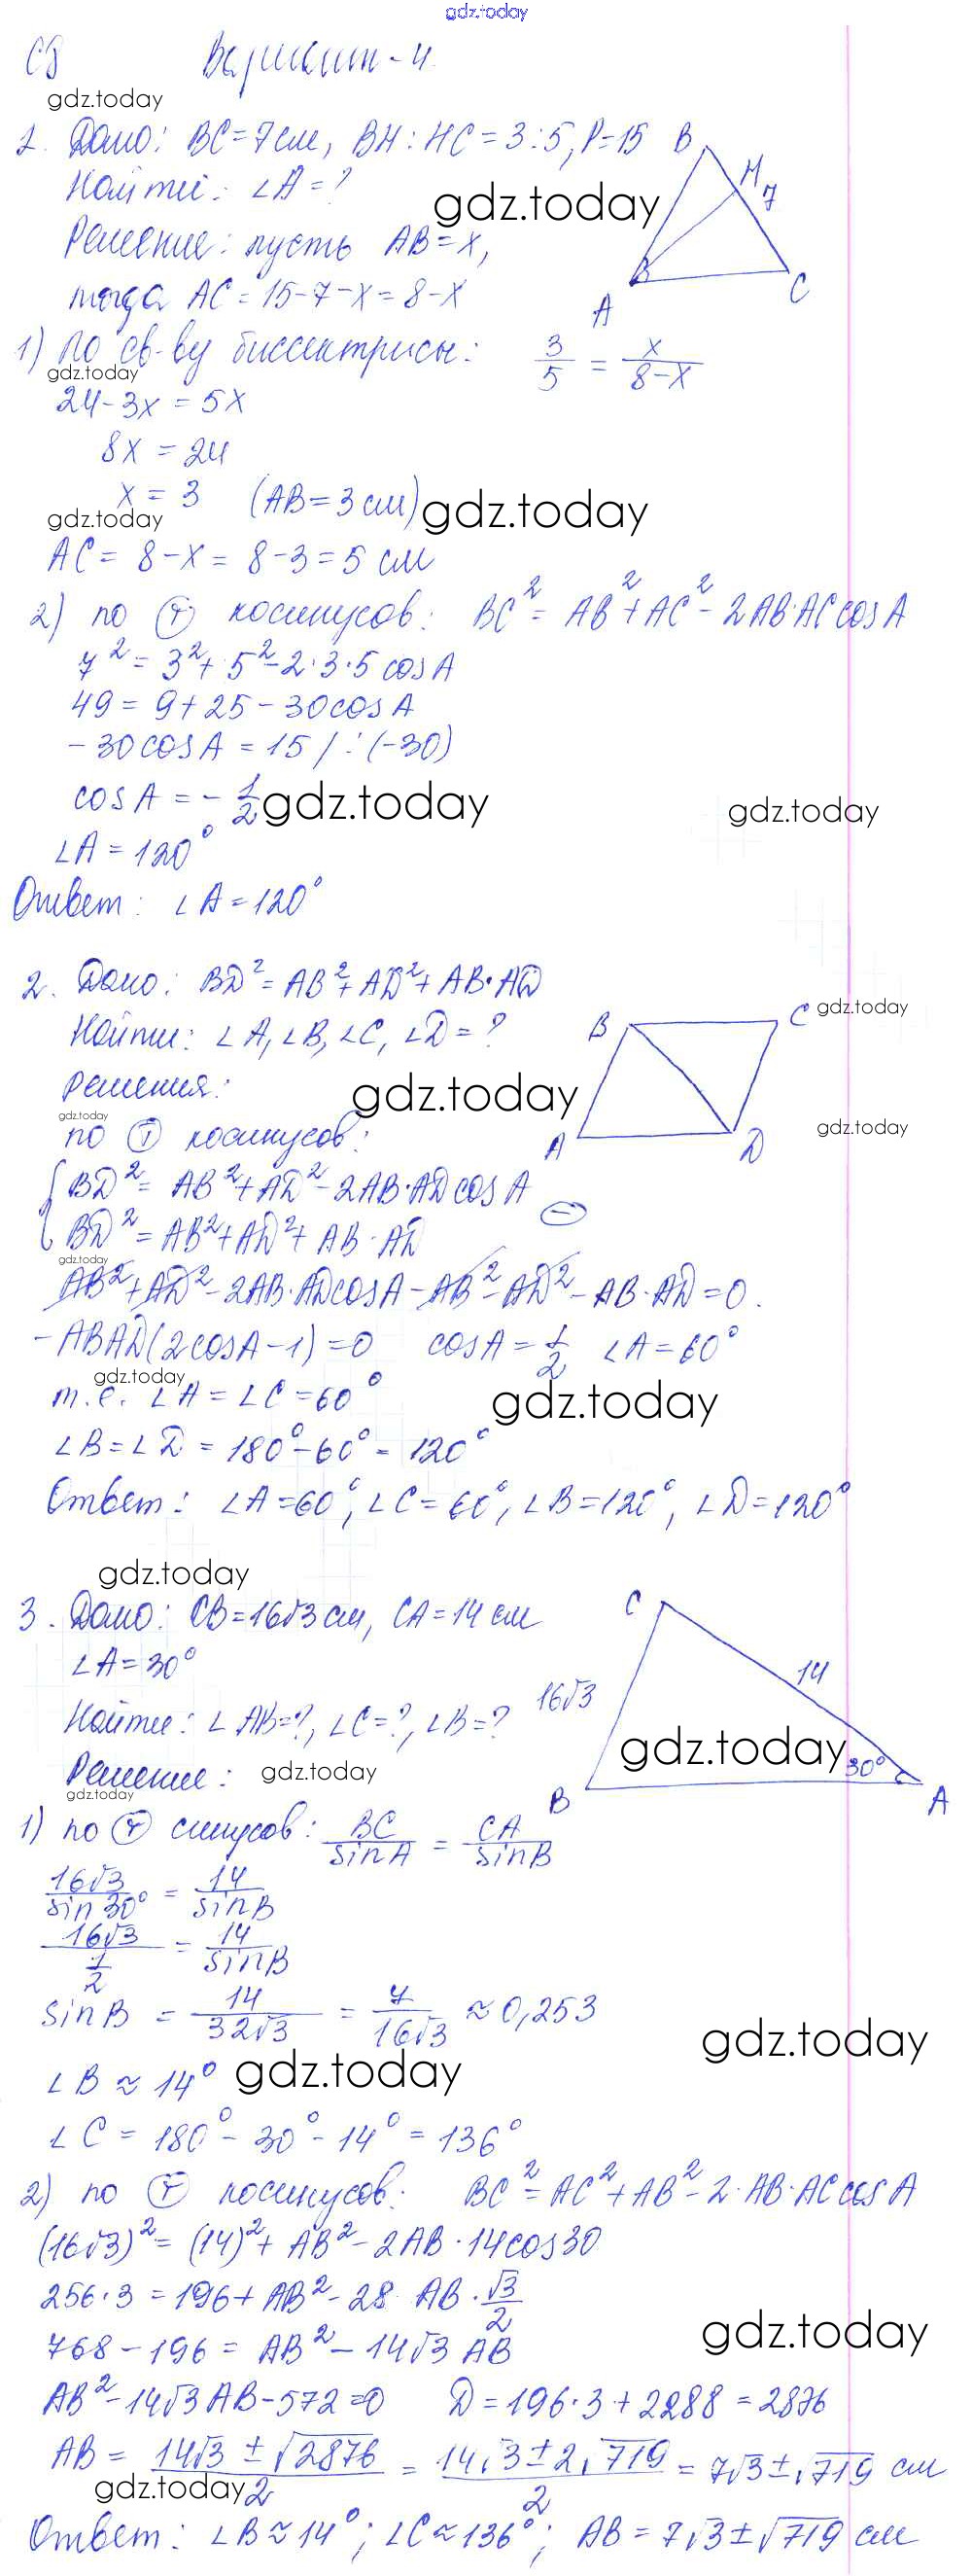 gdz.today
С8 Вариант-4.
gdz.today
1. Дано: BC=7см, BH:HC=3:5, P=15
Найти: ∠A=?
gdz.today
Решение: пусть AB=x,
тогда AC=15-7-x=8-x
B H 7 A C
1) По св-ву биссектрисы: 3/5 = x/(8-x)
gdz.today
24-3x=5x
8x=24
x=3 (AB=3см)
gdz.today
gdz.today
AC=8-x=8-3=5 см
2) по Ⓣ косинусов: BC²=AB²+AC²-2AB·AC cosA
7²=3²+5²-2·3·5 cosA
49=9+25-30cosA
-30cosA=15 /:(-30)
cosA=-1/2
gdz.today
gdz.today
∠A=120°
Ответ: ∠A=120°
2. Дано: BD²=AB²+AD²+AB·AD
Найти: ∠A, ∠B, ∠C, ∠D=?
Решения:
B C A D
gdz.today
gdz.today
gdz.today
gdz.today
по Ⓣ косинусов:
{BD²=AB²+AD²-2AB·AD cosA
BD²=AB²+AD²+AB·AD ⊖
gdz.today
AB²+AD²-2AB·AD cosA-AB²-AD²-AB·AD=0.
-ABAD(2cosA-1)=0 cosA=1/2 ∠A=60°
gdz.today
т.е. ∠A=∠C=60°
gdz.today
∠B=∠D=180°-60°=120°
Ответ: ∠A=60°, ∠C=60°, ∠B=120°, ∠D=120°
gdz.today
3. Дано: CB=16√3 см, CA=14 см
∠A=30°
Найти: ∠AB=?, ∠C=?, ∠B=?
C 14 16√3 30° B A
gdz.today
Решение:
gdz.today
gdz.today
1) по Ⓣ синусов: BC/sinA = CA/sinB
16√3/sin30° = 14/sinB
16√3/(1/2) = 14/sinB
sinB = 14/(32√3) = 7/(16√3) ≈ 0,253
gdz.today
∠B≈14°
gdz.today
∠C=180°-30°-14°=136°
2) по Ⓣ косинусов: BC²=AC²+AB²-2·AB·AC cosA
(16√3)²=(14)²+AB²-2AB·14cos30
256·3=196+AB²-28 AB·√3/2
gdz.today
768-196=AB²-14√3 AB
AB²-14√3AB-572=0 D=196·3+2288=2876
AB = (14√3±√2876)/2 = (14√3±2√719)/2 = 7√3±√719 см
gdz.today
Ответ: ∠B≈14°; ∠C≈136°; AB=7√3±√719 см